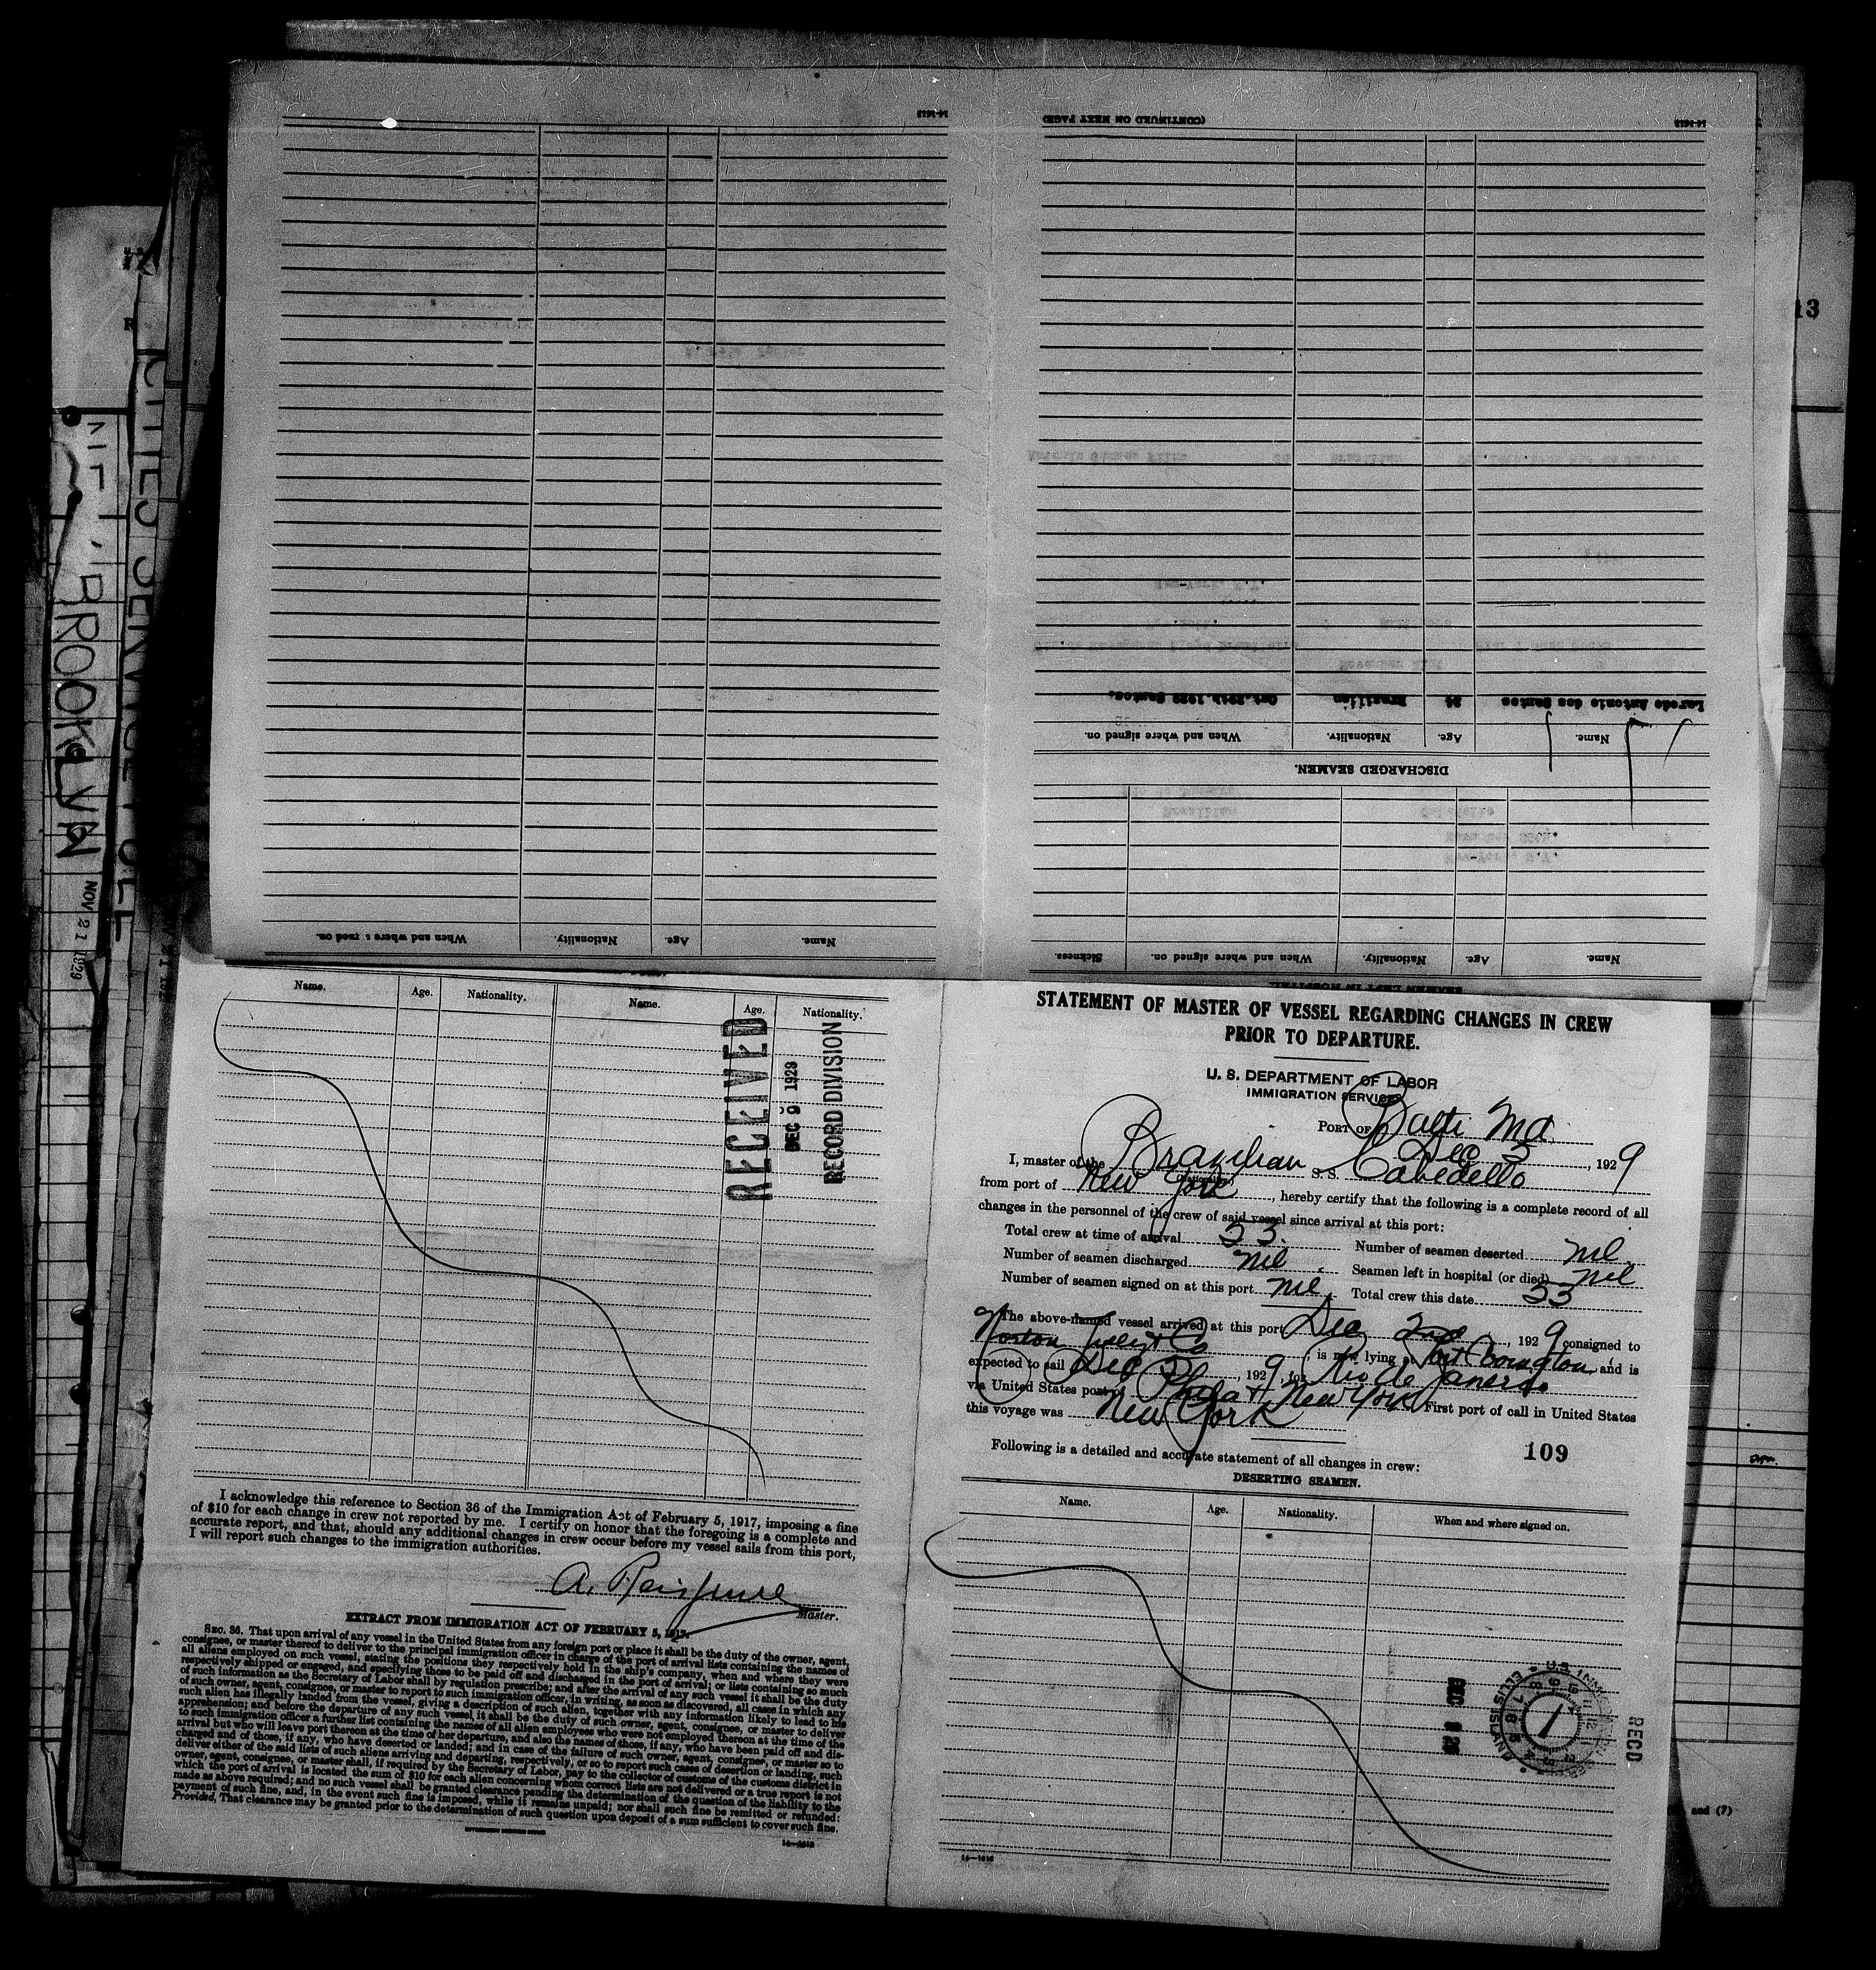 14-1613
(CONTINUED ON NEXT PAGE)
14-1613
13
Laredo Antonio dos Santos 24 Brazilian Oct. 29th. 1929 Santos.
Name. Age. Nationality. When and where signed on.
DISCHARGED SEAMEN.
Name. Age. Nationality. When and where signed on. Sickness.
SEAMEN LEFT IN HOSPITAL.
Name. Age. Nationality. When and where signed on.
BROOKLYN
NOV 21 1929
Name. Age. Nationality. Name. Age. Nationality.
RECEIVED
DEC 9 1929
RECORD DIVISION
I acknowledge this reference to Section 36 of the Immigration Act of February 5, 1917, imposing a fine
of $10 for each change in crew not reported by me. I certify on honor that the foregoing is a complete and
accurate report, and that, should any additional changes in crew occur before my vessel sails from this port,
I will report such changes to the immigration authorities.
A.
Master.
EXTRACT FROM IMMIGRATION ACT OF FEBRUARY 5, 1917.
SEC. 36. That upon arrival of any vessel in the United States from any foreign port or place it shall be the duty of the owner, agent,
consignee, or master thereof to deliver to the principal immigration officer in charge of the port of arrival lists containing the names of
all aliens employed on such vessel, stating the positions they respectively hold in the ship's company, when and where they were
respectively shipped or engaged, and specifying those to be paid off and discharged in the port of arrival; or lists containing so much
of such information as the Secretary of Labor shall by regulation prescribe; and after the arrival of any such vessel it shall be the duty
of such owner, agent, consignee, or master to report to such immigration officer, in writing, as soon as discovered, all cases in which any
such alien has illegally landed from the vessel, giving a description of such alien, together with any information likely to lead to his
apprehension; and before the departure of any such vessel it shall be the duty of such owner, agent, consignee, or master to deliver
to such immigration officer a further list containing the names of all alien employees who were not employed thereon at the time of the
arrival but who will leave port thereon at the time of her departure, and also the names of those, if any, who have been paid off and dis-
charged and of those, if any, who have deserted or landed; and in case of the failure of such owner, agent, consignee, or master so to
deliver either of the said lists of such aliens arriving and departing, respectively, or so to report such cases of desertion or landing, such
owner, agent, consignee, or master shall, if required by the Secretary of Labor, pay to the collector of customs of the customs district in
which the port of arrival is located the sum of $10 for each alien concerning whom correct lists are not delivered or a true report is not
made as above required; and no such vessel shall be granted clearance pending the determination of the question of the liability to the
payment of such fine, and, in the event such fine is imposed, while it remains unpaid; nor shall such fine be remitted or refunded:
Provided, That clearance may be granted prior to the determination of such question upon deposit of a sum sufficient to cover such fine.
14-1613
STATEMENT OF MASTER OF VESSEL REGARDING CHANGES IN CREW
PRIOR TO DEPARTURE.
U. S. DEPARTMENT OF LABOR
IMMIGRATION SERVICE
PORT OF Balti Md
Dec 3, 1929
I, master of the Brazilian S. S. Cabedello
(Nationality)
from port of New York, hereby certify that the following is a complete record of all
changes in the personnel of the crew of said vessel since arrival at this port:
Total crew at time of arrival 53. Number of seamen deserted nil
Number of seamen discharged nil Seamen left in hospital (or died) nil
Number of seamen signed on at this port nil Total crew this date 53
The above-named vessel arrived at this port Dec 2nd, 1929 consigned to
Norton Lilly & Co, is now lying at Port Covington, and is
expected to sail Dec 3d, 1929, for Rio de Janeiro
via United States port of Phila + New York First port of call in United States
this voyage was New York
109
Following is a detailed and accurate statement of all changes in crew:
DESERTING SEAMEN.
Name. Age. Nationality. When and where signed on.
ELLIS ISLAND
DEC 9 29
REC'D
14-1613
and (7)